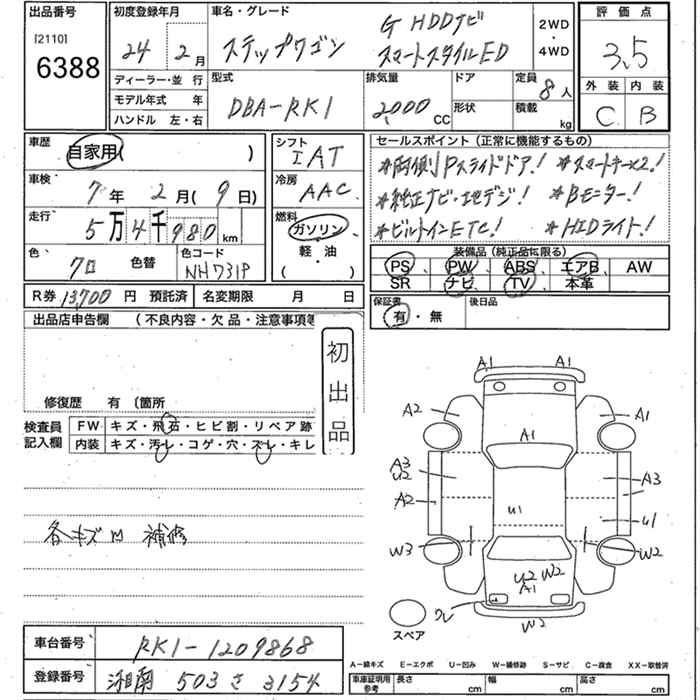 出品番号
[2110]
6388
初度登録年月
24年2月
車名・グレード
ステップワゴン
G HDDナビ
スマートスタイルED
2WD
・
4WD
評価点
3.5
外装 内装
C B
ディーラー・並行
モデル年式 年
ハンドル 左・右
型式
DBA-RK1
排気量
2,000 CC
ドア
形状
定員
8人
積載
kg
車歴
自家用( )
車検
7年 2月(9日)
走行
5万4千980km
色
クロ
色替
色コード
NH731P
シフト
IAT
冷房
AAC
燃料
ガソリン
軽・油
( )
セールスポイント(正常に機能するもの)
*両側Pスライドドア! *スマートキー×2!
*純正ナビ・地デジ! *Bモニター!
*ビルトインETC! *HIDライト!
装備品(純正品に限る)
PS、PW、ABS、エアB、AW
SR ナビ、TV、本革
保証書
有・無
後日品
R券 13,700円 預託済 名変期限 月 日
出品店申告欄 (不良内容・欠品・注意事項等
初出品
修復歴 有 〔箇所
検査員
記入欄
FW キズ・飛石・ヒビ割・リペア跡
内装 キズ・汚レ・コゲ・穴・スレ・キレ
各キズ凹 補修
A1 A1
A2 A1
A1
A3
U2
A3
A2
U1
U1
W3 W2
U2 W2
A1
ワレ
W2
スペア
車台番号 RK1-1209868
登録番号 湘南 503 さ 3154
A-線キズ E-エクボ U-凹み W-補修跡 S-サビ C-腐食 XX-取替済
車庫証明用
参考
長さ cm 幅 cm 高さ cm